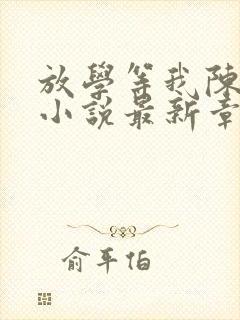 放學等我陳
小說最新章
俞平伯